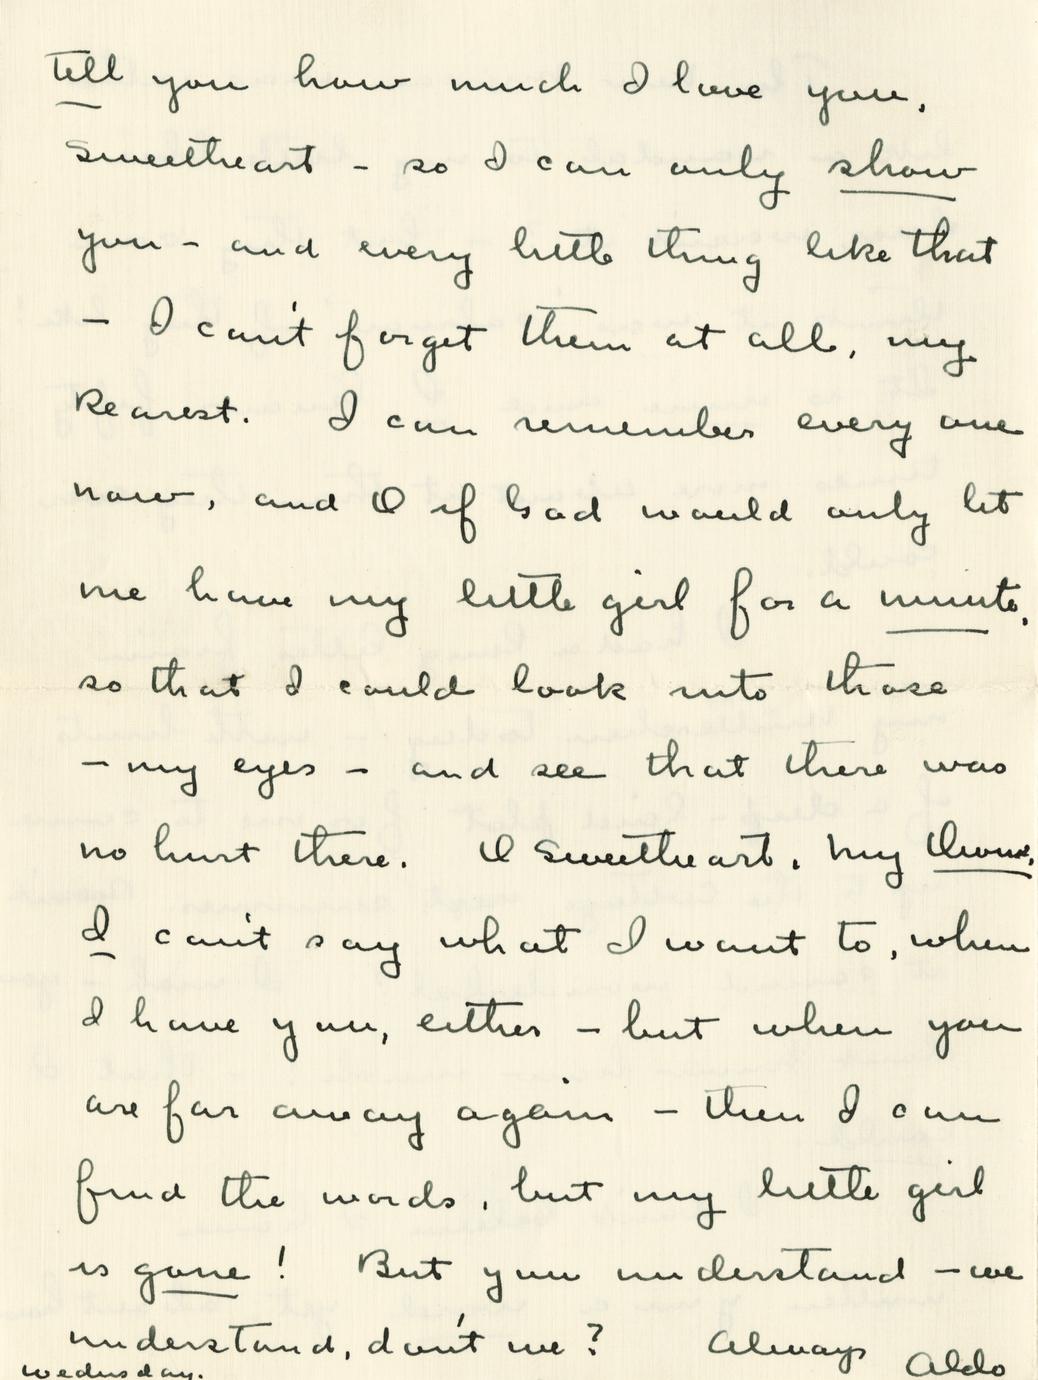 tell you how much I love you,
Sweetheart – so I can only show
you – and every little thing like that
– I can't forget them at all, my
Dearest. I can remember every one
now, and O if God would only let
me have my little girl for a minute,
so that I could look into those
– my eyes – and see that there was
no hurt there. O Sweetheart, my Own,
I can't say what I want to, when
I have you, either – but when you
are far away again – then I can
find the words, but my little girl
is gone! But you understand – we
understand, don't we? Always
Aldo
Wednesday.